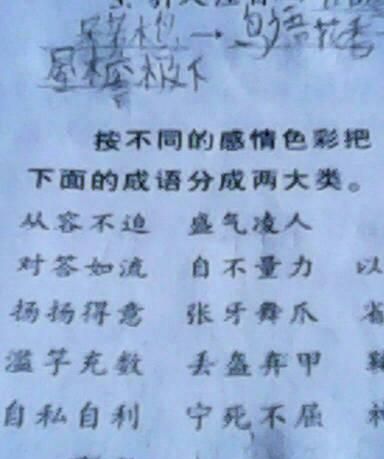 鸟语花香
按不同的感情色彩把
下面的成语分成两大类。
从容不迫 盛气凌人
对答如流 自不量力 以
扬扬得意 张牙舞爪 省
滥竽充数 丢盔弃甲
自私自利 宁死不屈